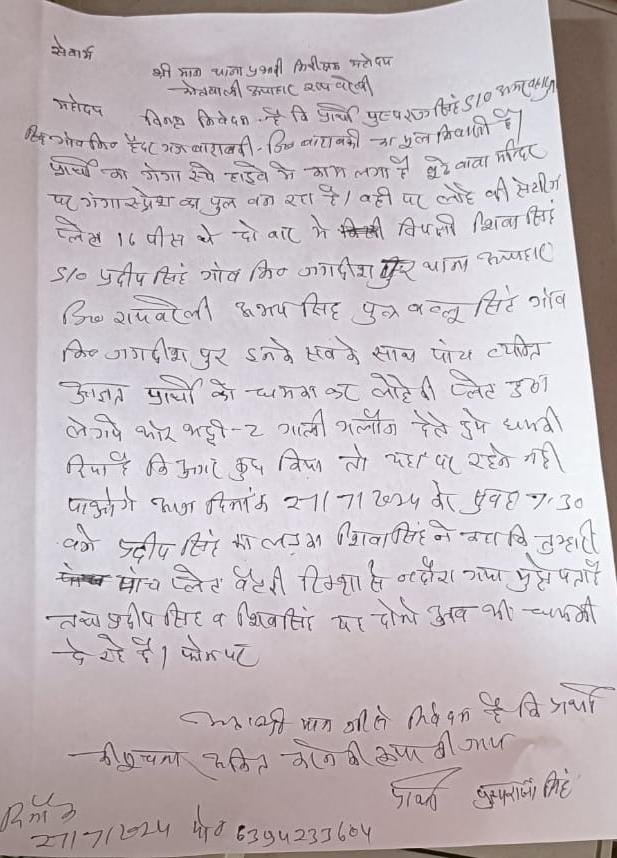 सेवामें
श्री मान थाना प्रभारी निरीक्षक महोदय
कोतवाली ऊंचाहार रायबरेली
महोदय विनम्र निवेदन है कि प्रार्थी पुष्पराज सिंह S/O
हैदरगढ़ बाराबंकी जि० बाराबंकी का मूल निवासी है।
प्रार्थी का गंगा हाइवे में काम लगा है बूढ़े बाबा मन्दिर
पर गंगा का पुल बन रहा है। वही पर लोहे की सेटरिंग
प्लेट 16 पीस को दो बार में विपक्षी शिवा सिंह
S/O प्रदीप सिंह गांव नि० जगदीशपुर थाना ऊंचाहार
जि० रायबरेली अभय सिंह पुत्र बल्लू सिंह गांव
नि० जगदीशपुर इनके सबके साथ पांच व्यक्ति
अज्ञात प्रार्थी को धमका कर लोहे की प्लेट उठा
ले गये और भद्दी-2 गाली गलौज देते हुये धमकी
दिया है कि अगर कुछ किया तो यहां पर रहने नही
पाओगे आज दिनांक 27/7/2024 को सुबह 7:30
बजे प्रदीप सिंह का लड़का शिवा सिंह ने कहा कि तुम्हारी
पांच प्लेट बैटरी रिक्शा से गया मुझे पता है
तथा प्रदीप सिंह व शिवा सिंह यह दोनो की धमकी
दे रहे है। फोन पर
अतः श्री मान जी से निवेदन है कि प्रार्थी
की सूचना अंकित करने की कृपा की जाय
प्रार्थी पुष्पराज सिंह
दिनांक
27/7/2024 मो० 6394233604